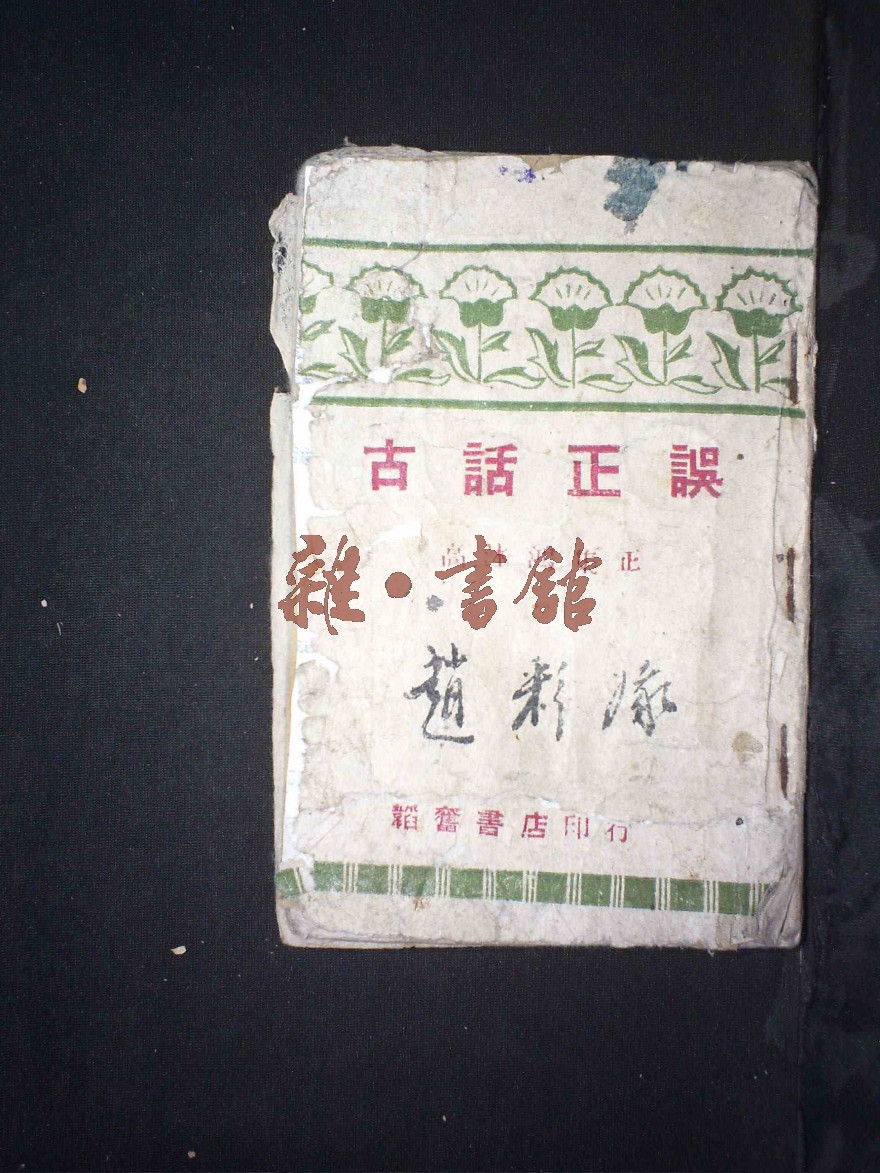 古話正誤
雜·書館
趙彩
韜奮書店印行